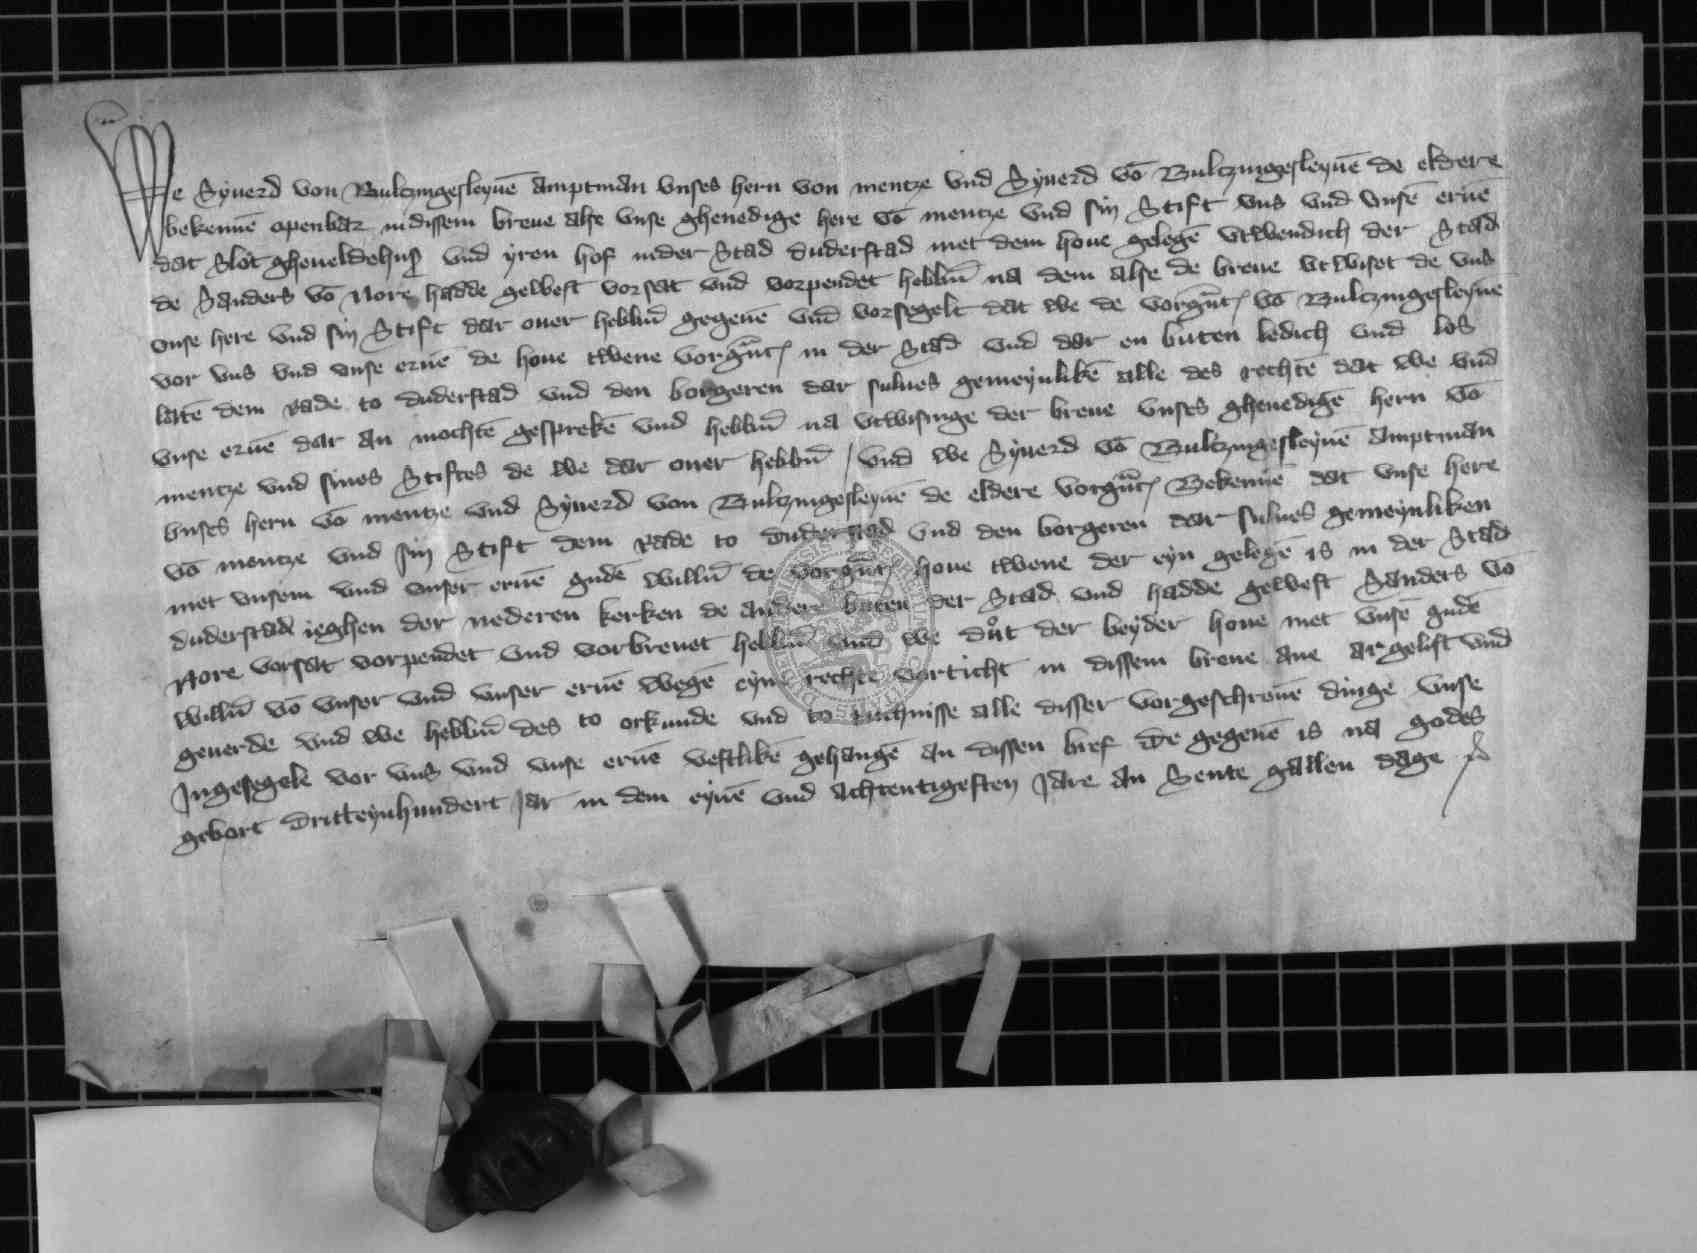 We Syuerd von Bultzingesleyuē amptman vnses hern von mentze vnd Syuerd vō Bultzingesleyuē de eldere
bekennē openbar in dissem breue alse vnse ghenedige here vō mentze vnd sin Stift vns vnd vnsē eruē
dat Slot gheueldehus vnd yren hof in der Stad duderstad met dem houe gelegē vtwendich der Stad
de Sanders vō Nore hadde gewest vorsat vnd vorpendet hebbn̄ na dem alse de breue vtwiset de vns
vnse here vnd sin Stift dar ouer hebbn̄ gegeuē vnd vorsegelt dat we de vorgn̄t vō Bultzingesleyue
vor vns vnd vnse eruē de houe twene vorgn̄t in der Stad vnd dar en buten ledich vnd los
latē dem Rade to duderstad vnd den borgeren dar sulues gemeynlikē alle des rechtē dat we vnd
vnse eruē dar an mochtē gesprekē vnd hebbn̄ na vtwisinge der breue vnses ghenedigē hern vō
mentze vnd sines Stiftes de we dar ouer hebbn̄ / vnd we Syuerd vō Bultzingesleyuē amptman
vnses hern vō mentze vnd Syuerd von Bultzingesleyuē de eldere vorgn̄t Bekennē dat vnse here
vō mentze vnd sin Stift dem Rade to duderstad vnd den borgeren dar sulues gemeynliken
met vnsem vnd vnser eruē gudē willn̄ de vorgn̄t houe twene der eyn gelegē is in der Stad
duderstad ieghen der nederen kerken de andere buten der Stad vnd hadde gewest Sanders vō
Nore vorsat vorpendet vnd vorbreuet hebbn̄ vnd we důt der beyder houe met vnsē gudē
willn̄ vō vnser vnd vnser eruē wegē eyne rechte vorticht in dissem breue ane argelist vnd
geuerde vnd we hebbn̄ des to orkunde vnd to tuchnisse alle disser vorgeschreuē dinge vnse
Ingesegele vor vns vnd vnse eruē vestlikē gehangē an dissen bref de gegeuē is na godes
gebort dritteynhundert Jar in dem eynē vnd achtentigesten Jare an Sente gallen dage